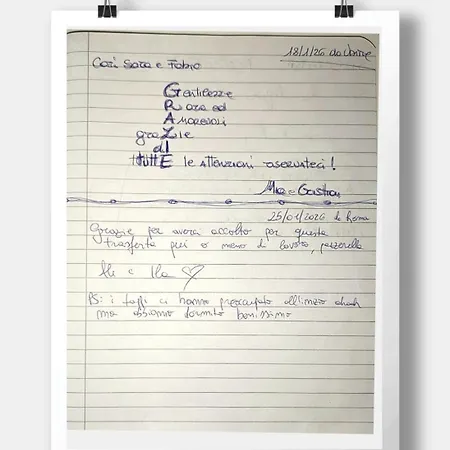 18/1/26 da Udine
Cari Sara e Fabio
Gentilezze
Rare ed
Amorevoli
graZie
dI
tuttE le attenzioni riservateci!
Mia e Gaston
25/01/2026 da Roma
Grazie per averci accolto per questa
trasferta più o meno di lavoro,
Ale e Ila ♡
PS: i tappi ci hanno preoccupato all'inizio
ma abbiamo dormito benissimo